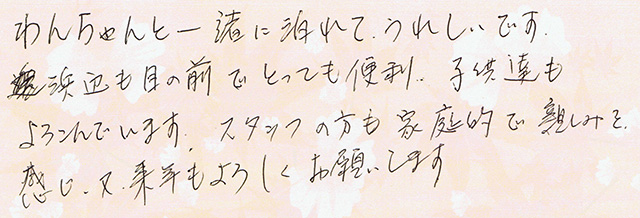 わんちゃんと一緒に泊れて、うれしいです.
浜辺も目の前でとっても便利.. 子供達も
よろこんでいます. スタッフの方も家庭的で親しみを、
感じ、又、来年もよろしくお願いします